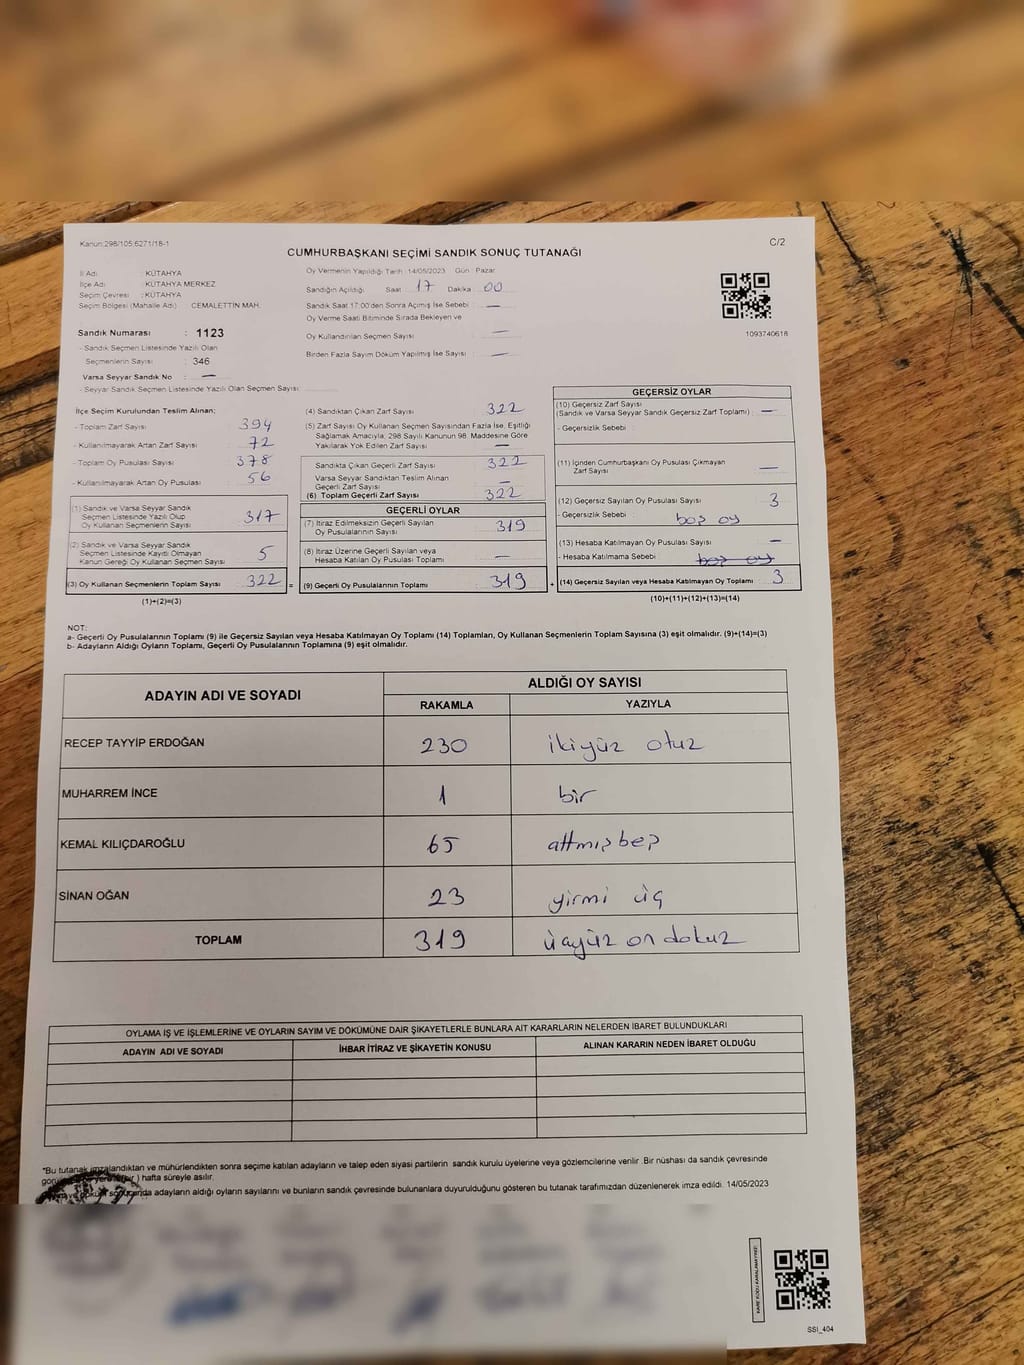 Kanun:298/105;6271/18-1
C/2
CUMHURBAŞKANI SEÇİMİ SANDIK SONUÇ TUTANAĞI
İl Adı : KÜTAHYA
İlçe Adı : KÜTAHYA MERKEZ
Seçim Çevresi : KÜTAHYA
Seçim Bölgesi (Mahalle Adı) : CEMALETTİN MAH.
Sandık Numarası : 1123
- Sandık Seçmen Listesinde Yazılı Olan
Seçmenlerin Sayısı : 346
Varsa Seyyar Sandık No : —
- Seyyar Sandık Seçmen Listesinde Yazılı Olan Seçmen Sayısı :
Oy Vermenin Yapıldığı Tarih : 14/05/2023 Gün : Pazar
Sandığın Açıldığı Saat 17 Dakika 00
Sandık Saat 17:00'den Sonra Açımış İse Sebebi : —
Oy Verme Saati Bitiminde Sırada Bekleyen ve
Oy Kullandırılan Seçmen Sayısı —
Birden Fazla Sayım Döküm Yapılmış İse Sayısı : —
1093740618
İlçe Seçim Kurulundan Teslim Alınan;
- Toplam Zarf Sayısı : 394
- Kullanılmayarak Artan Zarf Sayısı : 72
- Toplam Oy Pusulası Sayısı : 378
- Kullanılmayarak Artan Oy Pusulası : 56
(1) Sandık ve Varsa Seyyar Sandık
Seçmen Listesinde Yazılı Olup
Oy Kullanan Seçmenlerin Sayısı : 317
(2) Sandık ve Varsa Seyyar Sandık
Seçmen Listesinde Kayıtlı Olmayan
Kanun Gereği Oy Kullanan Seçmen Sayısı : 5
(3) Oy Kullanan Seçmenlerin Toplam Sayısı : 322 =
(1)+(2)=(3)
(4) Sandıktan Çıkan Zarf Sayısı : 322
(5) Zarf Sayısı Oy Kullanan Seçmen Sayısından Fazla İse, Eşitliği
Sağlamak Amacıyla; 298 Sayılı Kanunun 98. Maddesine Göre
Yakılarak Yok Edilen Zarf Sayısı : —
Sandıkta Çıkan Geçerli Zarf Sayısı : 322
Varsa Seyyar Sandıktan Teslim Alınan
Geçerli Zarf Sayısı : —
(6) Toplam Geçerli Zarf Sayısı : 322
GEÇERLİ OYLAR
(7) İtiraz Edilmeksizin Geçerli Sayılan
Oy Pusulalarının Sayısı : 319
(8) İtiraz Üzerine Geçerli Sayılan veya
Hesaba Katılan Oy Pusulası Toplamı : —
(9) Geçerli Oy Pusulalarının Toplamı : 319 +
GEÇERSİZ OYLAR
(10) Geçersiz Zarf Sayısı
(Sandık ve Varsa Seyyar Sandık Geçersiz Zarf Toplamı) : —
- Geçersizlik Sebebi :
(11) İçinden Cumhurbaşkanı Oy Pusulası Çıkmayan
Zarf Sayısı : —
(12) Geçersiz Sayılan Oy Pusulası Sayısı : 3
- Geçersizlik Sebebi : boş oy
(13) Hesaba Katılmayan Oy Pusulası Sayısı : —
- Hesaba Katılmama Sebebi : boş oy
(14) Geçersiz Sayılan veya Hesaba Katılmayan Oy Toplamı : 3
(10)+(11)+(12)+(13)=(14)
NOT:
a- Geçerli Oy Pusulalarının Toplamı (9) ile Geçersiz Sayılan veya Hesaba Katılmayan Oy Toplamı (14) Toplamları, Oy Kullanan Seçmenlerin Toplam Sayısına (3) eşit olmalıdır. (9)+(14)=(3)
b- Adayların Aldığı Oyların Toplamı, Geçerli Oy Pusulalarının Toplamına (9) eşit olmalıdır.
ADAYIN ADI VE SOYADI
ALDIĞI OY SAYISI
RAKAMLA YAZIYLA
RECEP TAYYİP ERDOĞAN 230 ikiyüz otuz
MUHARREM İNCE 1 bir
KEMAL KILIÇDAROĞLU 65 attmış beş
SİNAN OĞAN 23 yirmi üç
TOPLAM 319 üçyüz on dokuz
OYLAMA İŞ VE İŞLEMLERİNE VE OYLARIN SAYIM VE DÖKÜMÜNE DAİR ŞİKAYETLERLE BUNLARA AİT KARARLARIN NELERDEN İBARET BULUNDUKLARI
ADAYIN ADI VE SOYADI İHBAR İTİRAZ VE ŞİKAYETİN KONUSU ALINAN KARARIN NEDEN İBARET OLDUĞU
"Bu tutanak imzalandıktan ve mühürlendikten sonra seçime katılan adayların ve talep eden siyasi partilerin sandık kurulu üyelerine veya gözlemcilerine verilir .Bir nüshası da sandık çevresinde
) hafta süreyle asılır.
adayların aldığı oyların sayılarını ve bunların sandık çevresinde bulunanlara duyurulduğunu gösteren bu tutanak tarafımızdan düzenlenerek imza edildi. 14/05/2023
KARE KODU KARALAMAYINIZ!
SSI_404